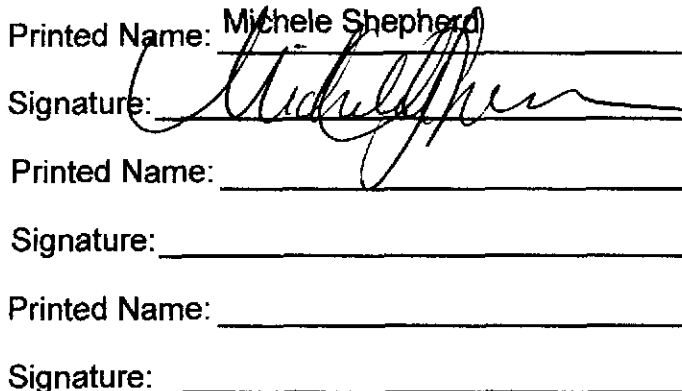 Printed Name: Michele Shepherd
Signature:
Printed Name:
Signature:
Printed Name:
Signature: